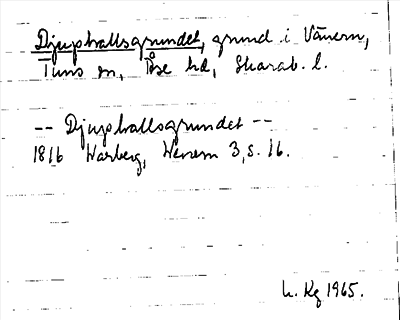 Djuphallsgrundet, grund i Vänern,
Tuns sn, Åse hd, Skarab. l.
-- Djuphallsgrundet --
1816 Warberg, Wenern 3, s. 16.
L. Kg 1965.